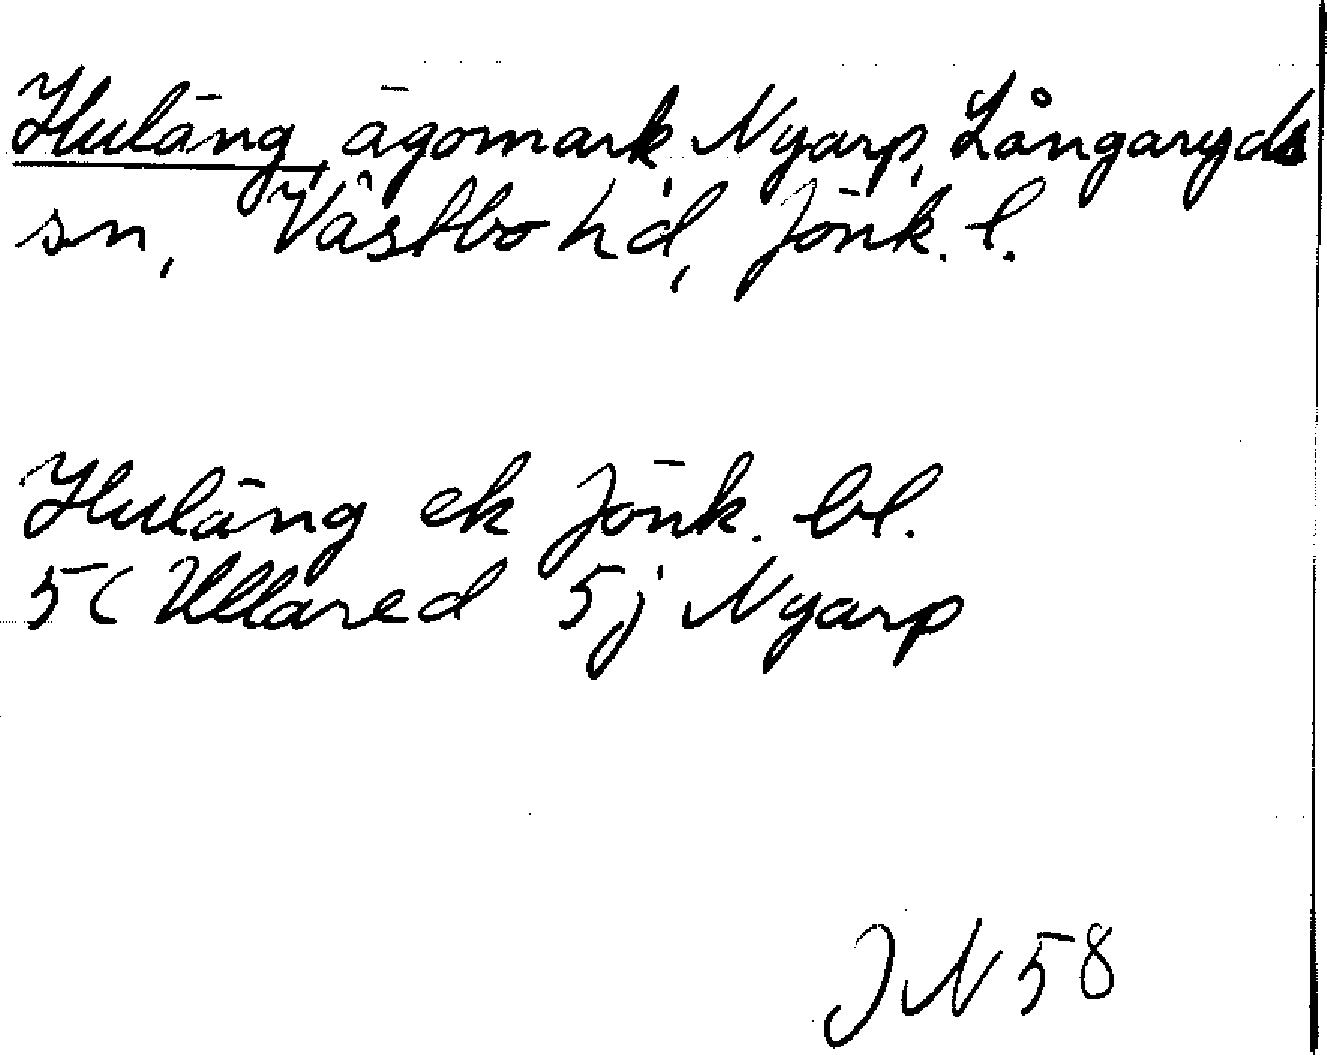 Huläng, ägomark, Nyarp, Långaryds
sn, Västbo hd, Jönk. l.
Huläng ek Jönk. bl.
5C Ullared 5j Nyarp
JN 58